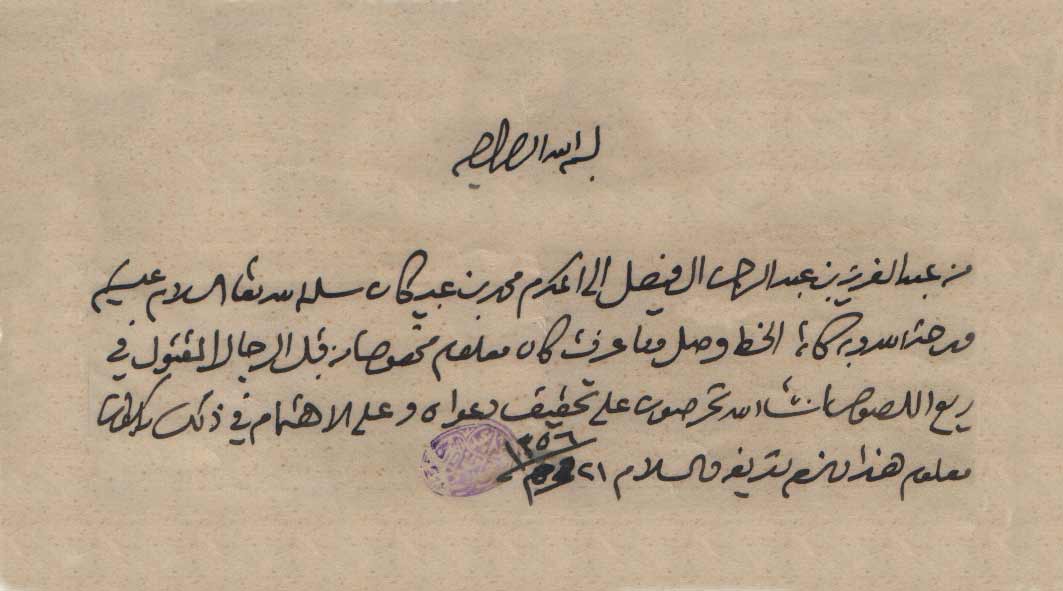 بسم الله الرحمن الرحيم
من عبد العزيز بن عبد الرحمن الفيصل إلى المكرم محمد بن عبيكان سلمه الله تعالى السلام عليكم
ورحمة الله وبركاته الخط وصل وما عرفت كان معلوم مخصوصا من قبل الرجال المقتول في
ريع اللصوص إنشاء الله تحرصون على تحقيق دعواه وعلى الاهتمام في ذلك
معلوم هذا ما لزم تعريفه والسلام ٢١
١٣٥٦